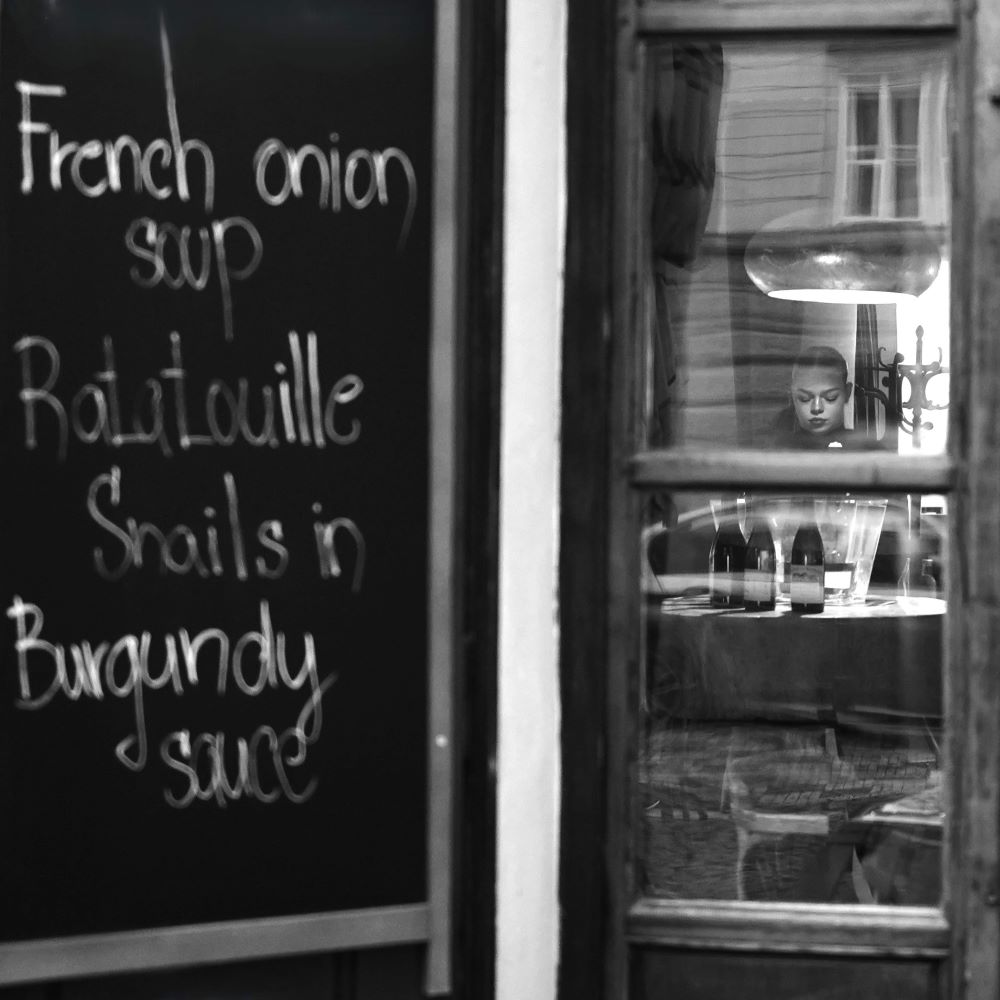 French onion
soup
Ratatouille
Snails in
Burgundy
sauce